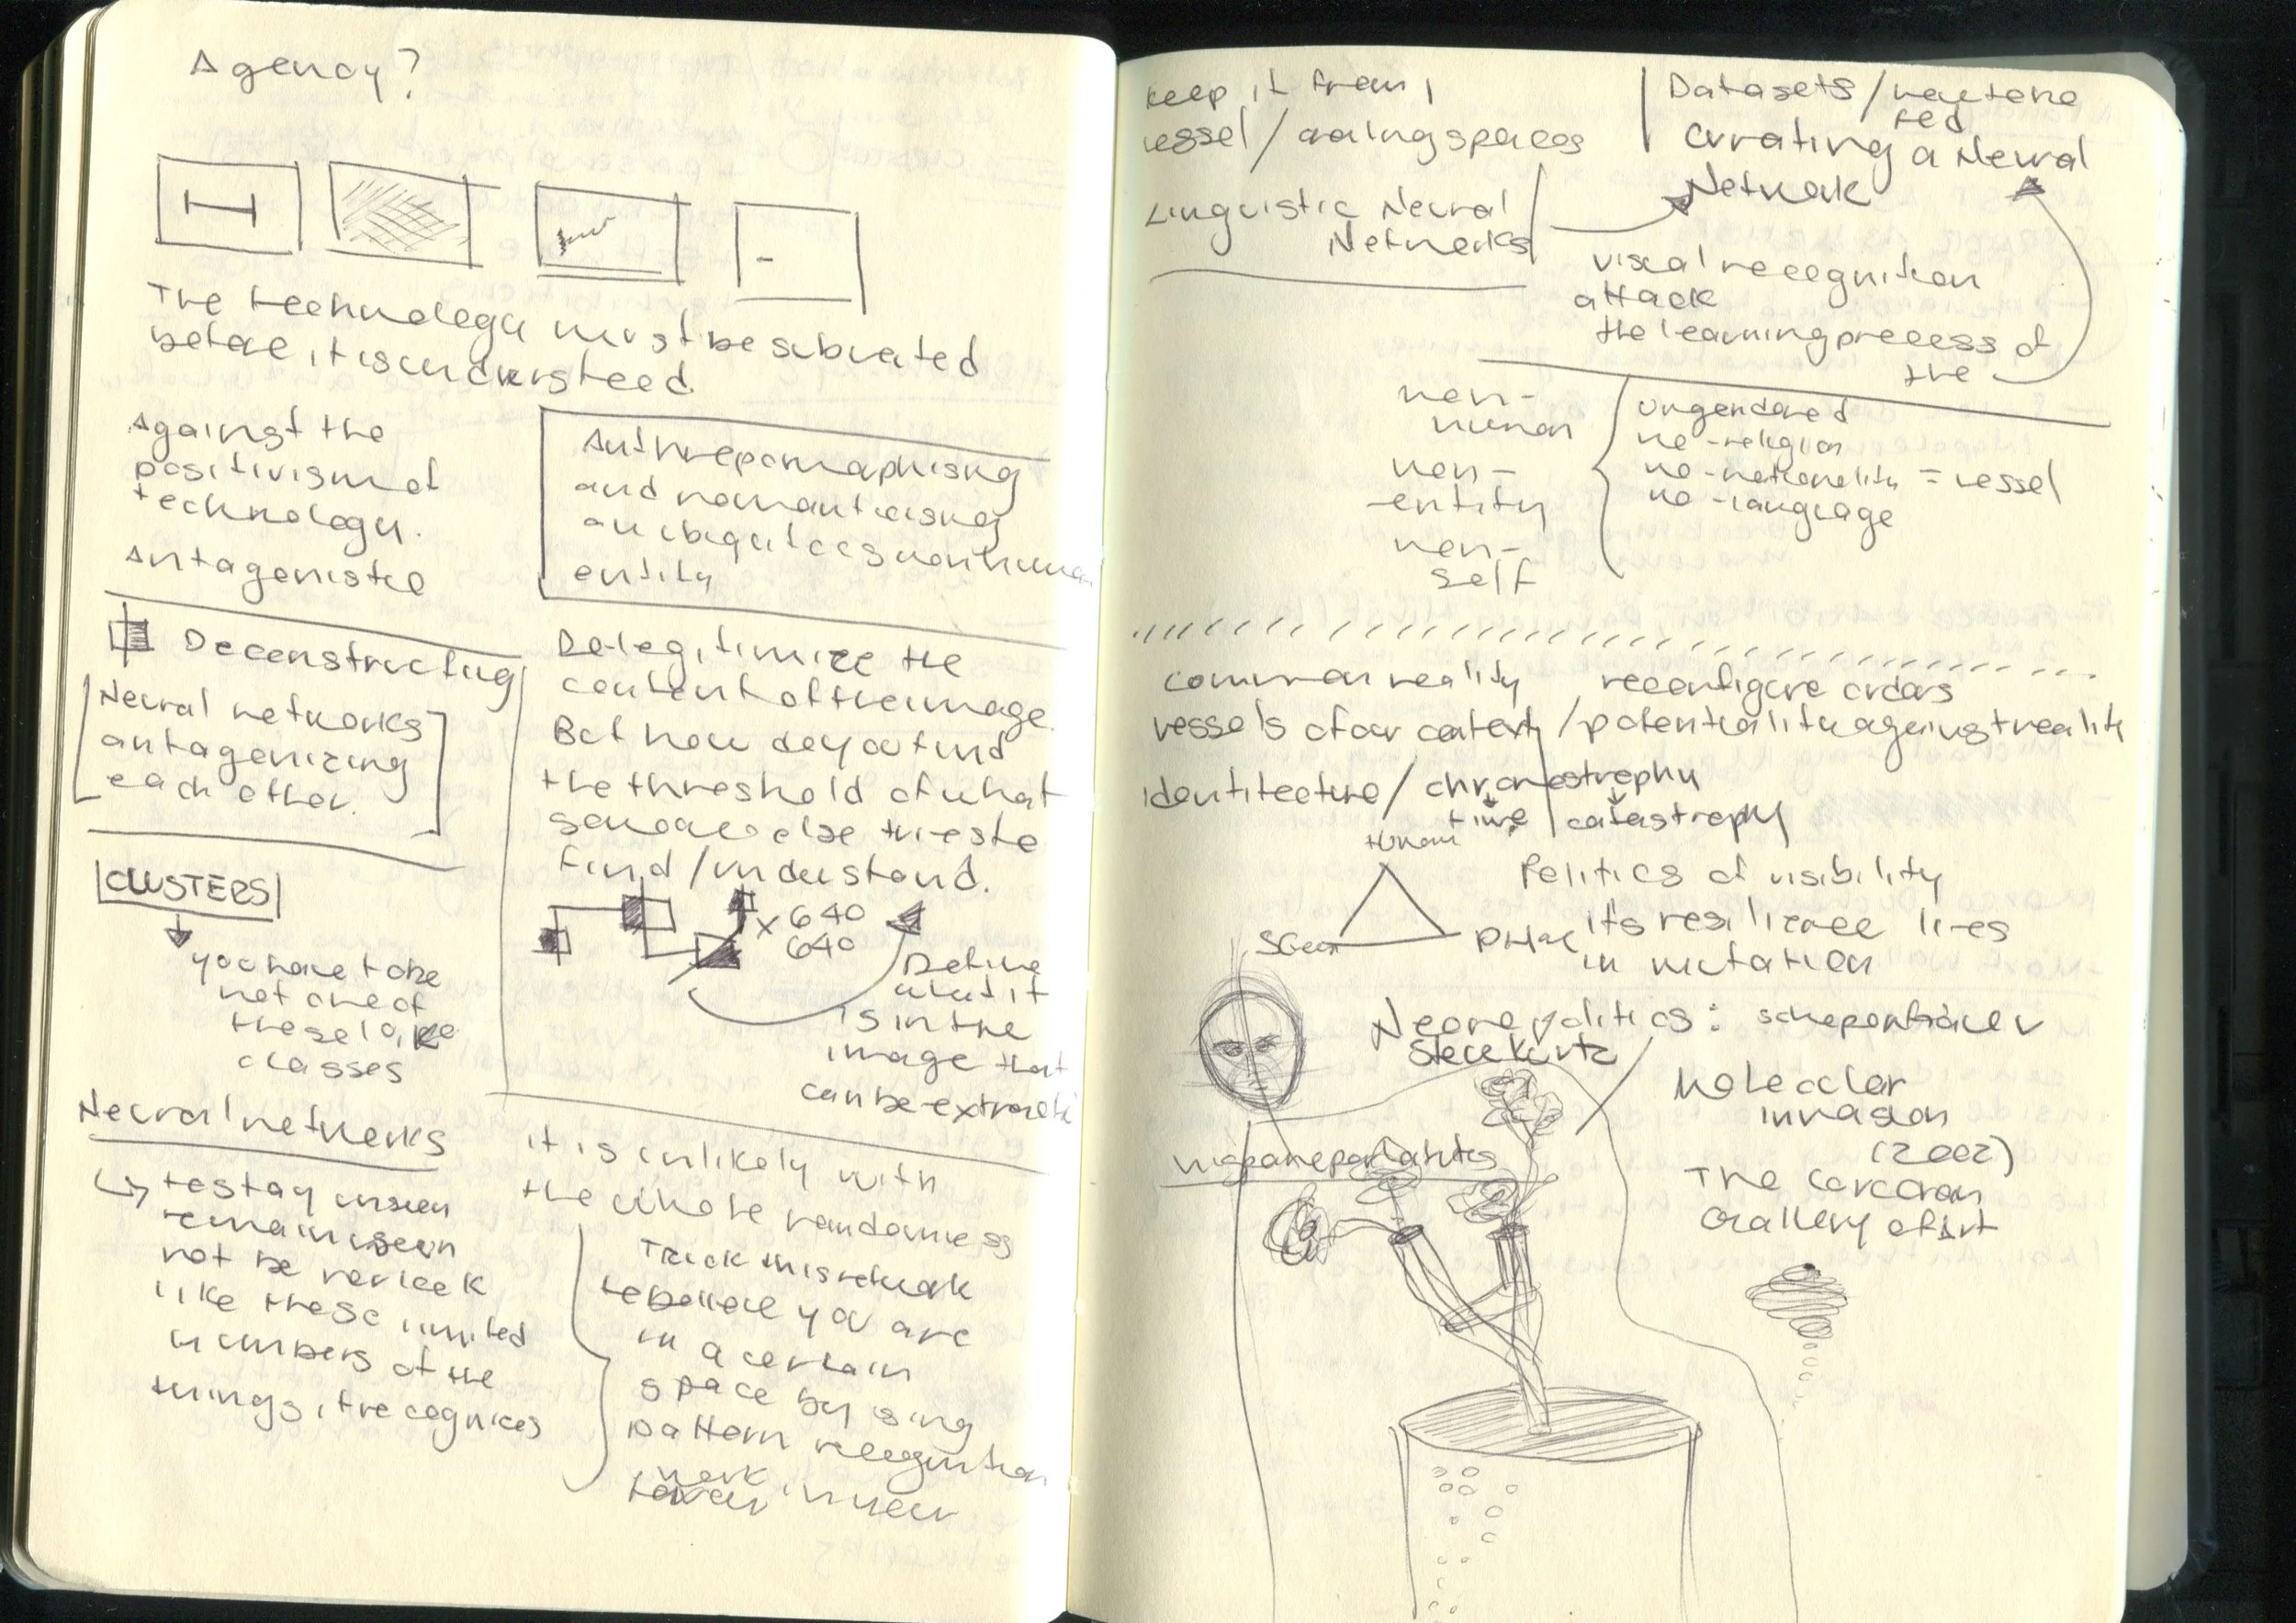 Agency?
The technology must be subverted
before it is understood.
Against the
positivism of
technology.
Antagonistic
Anthropomorphising
and romanticising
an ubiquitous nonhuman
entity
Deconstructing
Neural networks
antagonizing
each other.
CLUSTERS
you have to be
not one of
these
classes
Neural networks
to stay unseen
remain seen
not be
like these limited
numbers of the
things it recognices
Delegitimize the
content of the image.
But how do you find
the threshold of what
someone else tries to
find/understand.
x 640
640
Define
what it
is in the
image that
can be extracted
it is unlikely with
the whole randomness
Trick this network
to believe you are
in a certain
space by using
pattern recognition
work
Keep it from
vessel / spaces
Linguistic Neural
Networks
Datasets /
fed
Curating a Neural
Network
visual recognition
attack
the learning process of
the
non-
human
non-
entity
non-
self
ungendered
no-religion
no-nationality = vessel
no-language
common reality reconfigure orders
vessels of our context / potentiality against reality
identitecture / chronostrophy
time catastrophy
human
Politics of visibility
its resilience lies
in mutation
Necropolitics:
Steve Kurtz
Molecular
invasion
(2002)
The Corcoran
Gallery of Art